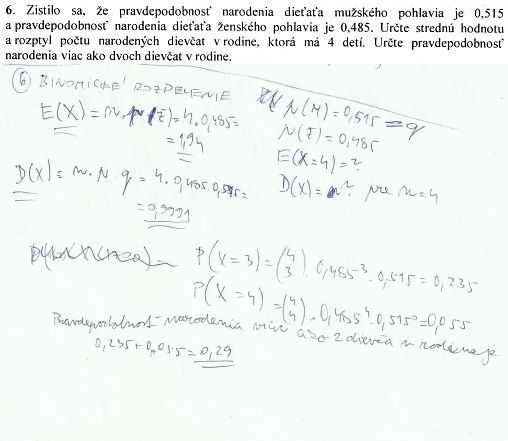 6. Zistilo sa, že pravdepodobnosť narodenia dieťaťa mužského pohlavia je 0,515
a pravdepodobnosť narodenia dieťaťa ženského pohlavia je 0,485. Určte strednú hodnotu
a rozptyl počtu narodených dievčat v rodine, ktorá má 4 detí. Určte pravdepodobnosť
narodenia viac ako dvoch dievčat v rodine.
6 BINOMICKÉ ROZPELENIE
E(X) = n. p (Ž) = 4. 0,485 =
= 1,94
D(X) = n. p q = 4. 0,485. 0,515 =
= 0,9991
p(M) = 0,515 = q
p(Ž) = 0,485
E(X=4) = ?
D(X) = ? pre n=4
P(X=3) = (4 3). 0,485³. 0,515 = 0,235
P(X=4) = (4 4). 0,485⁴. 0,515⁰ = 0,055
Pravdepodobnosť narodenia viac ako 2 dievča v rodine je
0,235 + 0,055 = 0,29